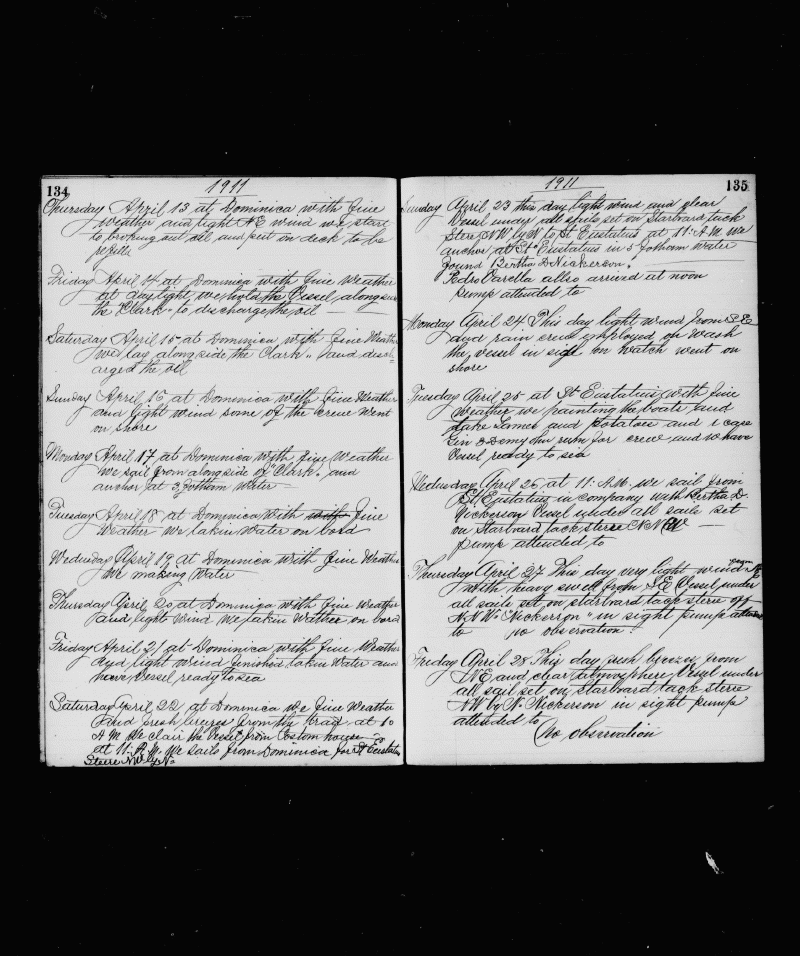 134
1911
Thursday April 13 at Dominica with fine
weather and light N.E wind we start
to broking out oil and put on deck to be
refills
Friday April 14 at Dominica with fine Weather
at daylight we hola the Vessel alongside
the Clark. to discharge the oil
Saturday April 15 at Dominica with fine Weather
we lay alongside the Clark. and disch=
arged the oil
Sunday April 16 at Dominica with fine Weather
and light wind some of the crew went
on shore
Monday April 17 at Dominica with fine Weather
we sail from alongside of Clark. and
anchor at 3 fothom Water
Tuesday April 18 at Dominica with with fine
Weather we takin Water on bord
Wednesday April 19 at Dominica with fine Weather
We making Water
Thursday April 20 at Dominica with fine Weather
and light wind we takin Watter on bord
Friday April 21 at Dominica with fine Weather
and light wind finished takin Water and
have Vessel ready to sea
Saturday April 22 at Dominica we fine Weather
and fresh breezes from the at 10
A M We clair the Vessel from Costom house
at 11. A. M. We sails from Dominica for St Eustatius
Steere NW by N.
1911
135
Sunday April 23 this day light wind and glear
Vessel under all sails set on Starbord tack
Stere NW by N to St Eustatius at 11. A.M. We
anchor at St Eustatius in 5 fothom Water
found Bertha D Nickerson.
Pedro Varella allso arrived at noon
pump attended to
Monday April 24 This day light wind from S.E
and rain crew employed on Wash
the Vessel in side on watch went on
shore
Tuesday April 25 at St Eustatius with fine
Weather we painting the boats and
take James and potatoes and 1 case
Gin & Demyjhn rum for crew and we have
Vessel ready to sea
Wednesday April 26 at 11. A.M. we sail from
St Eustatius in company with Bertha D.
Nickerson Vessel under all sails set
on Starbord tack stere NNW
pump attended to
Thursday April 27 This day very light wind from NE
with heavy swell from S.E Vessel under
all sails set on starbord tack stere off
N.N.W. Nickerson in sight pump attended
to no observation.
Friday April 28 This day fresh breezes from
N.E. and clear atmosphere Vessel under
all sail set on starbord tack stere
NW by N. Nickerson in sight pump
attended to
No observation